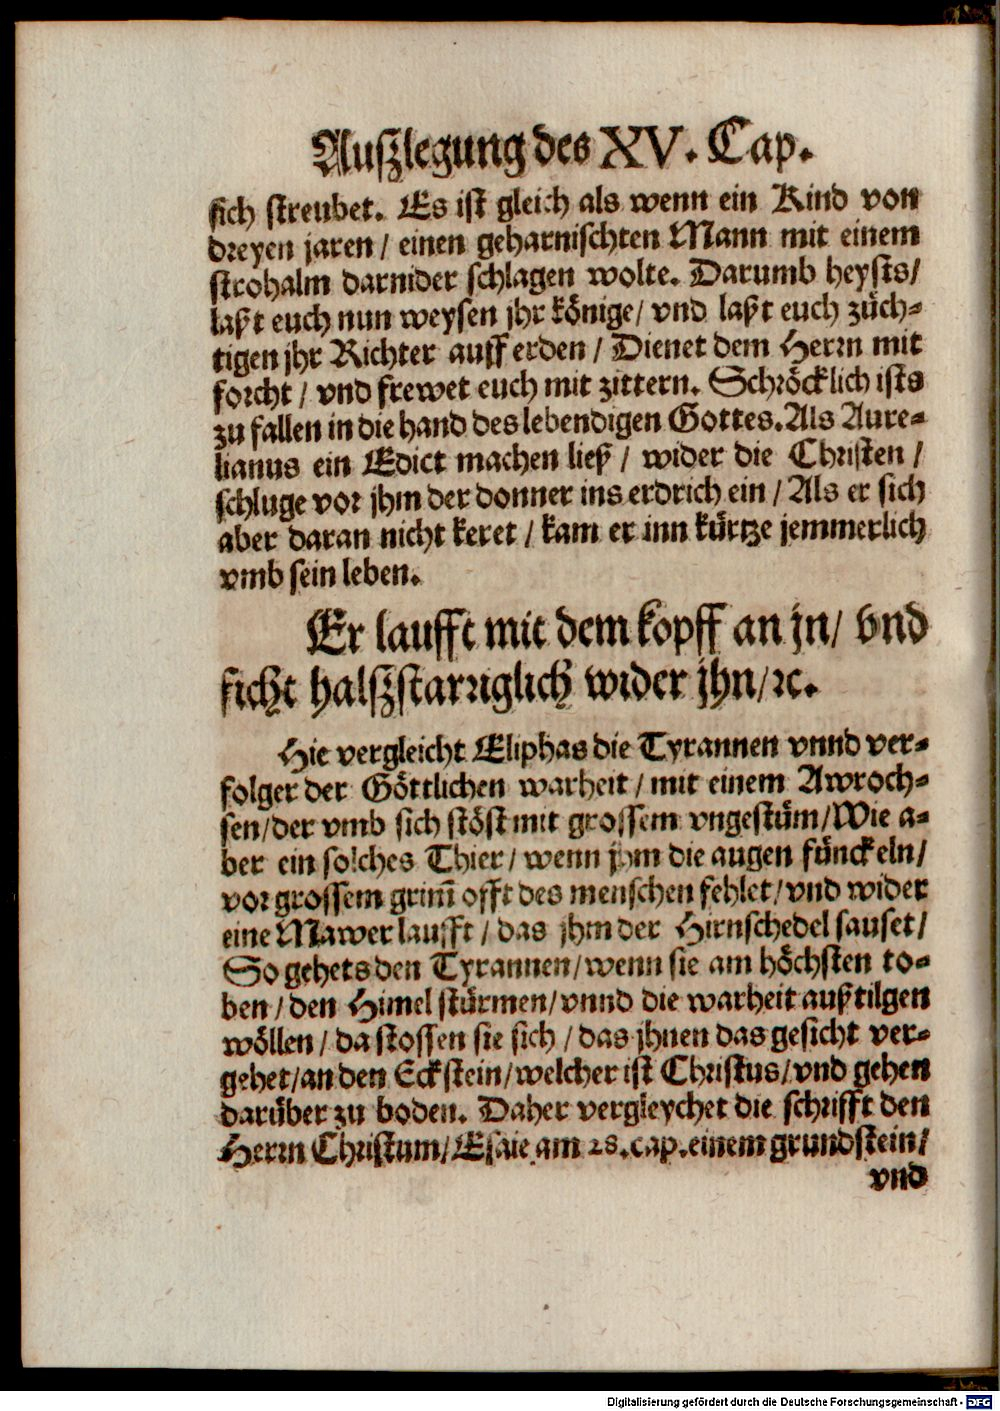 Auſzlegung des XV. Cap.
ſich ſtreubet. Es iſt gleich als wenn ein Kind von
dreyen jaren / einen geharniſchten Mann mit einem
ſtrohalm darnider ſchlagen wolte. Darumb heyſts /
laßt euch nun weyſen jhr könige / vnd laßt euch züch-
tigen jhr Richter auff erden / Dienet dem Herrn mit
forcht / vnd frewet euch mit zittern. Schröcklich iſts
zu fallen in die hand des lebendigen Gottes. Als Aure-
lianus ein Edict machen ließ / wider die Chriſten /
ſchluge vor jhm der donner ins erdrich ein / Als er ſich
aber daran nicht keret / kam er inn kürtze jemmerlich
vmb ſein leben.
Er laufft mit dem kopff an jn / vnd
ficht halſzſtarriglich wider jhn / ꝛc.
Hie vergleicht Eliphas die Tyrannen vnnd ver-
folger der Göttlichen warheit / mit einem Awroch-
ſen / der vmb ſich ſtöſt mit groſſem vngeſtüm / Wie a-
ber ein ſolches Thier / wenn jhm die augen fünckeln /
vor groſſem grim̃ offt des menſchen fehlet / vnd wider
eine Mawer laufft / das jhm der Hirnſchedel ſauſet /
So gehets den Tyrannen / wenn ſie am höchſten to-
ben / den Himel ſtürmen / vnnd die warheit außtilgen
wöllen / da ſtoſſen ſie ſich / das jhnen das geſicht ver-
gehet / an den Eckſtein / welcher iſt Chriſtus / vnd gehen
darüber zu boden. Daher vergleychet die ſchrifft den
Herrn Chriſtum / Eſaie am 28. cap. einem grundſtein /
vnd
Digitalisierung gefördert durch die Deutsche Forschungsgemeinschaft - DFG